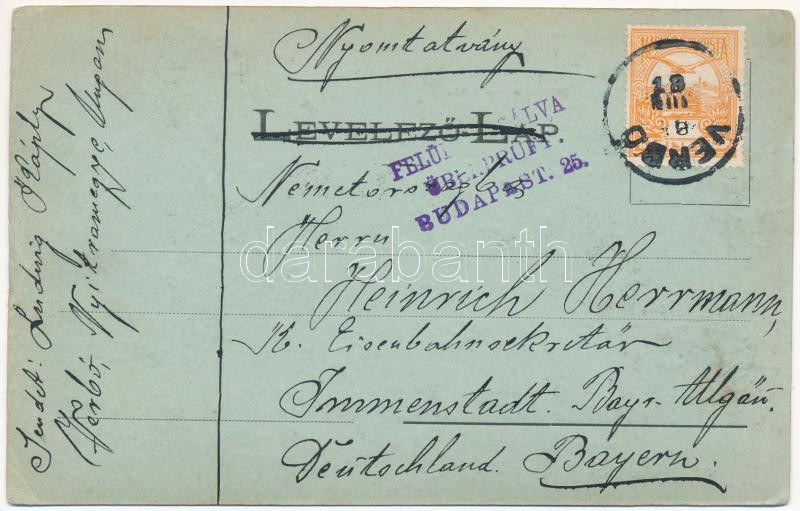 Nyomtatvány
LEVELEZŐ-LAP.
FELÜLVIZSGÁLVA
ÜBERPRÜFT
BUDAPEST. 25.
VERBÓ
Németország
Herrn
Heinrich Herrmann,
K. Eisenbahnsekretär
Immenstadt. Bayr-Allgäu.
Deutschland. Bayern.
Sendet: Ludwig Káply
Verbó, Nyitramegye, Ungarn
darabanth